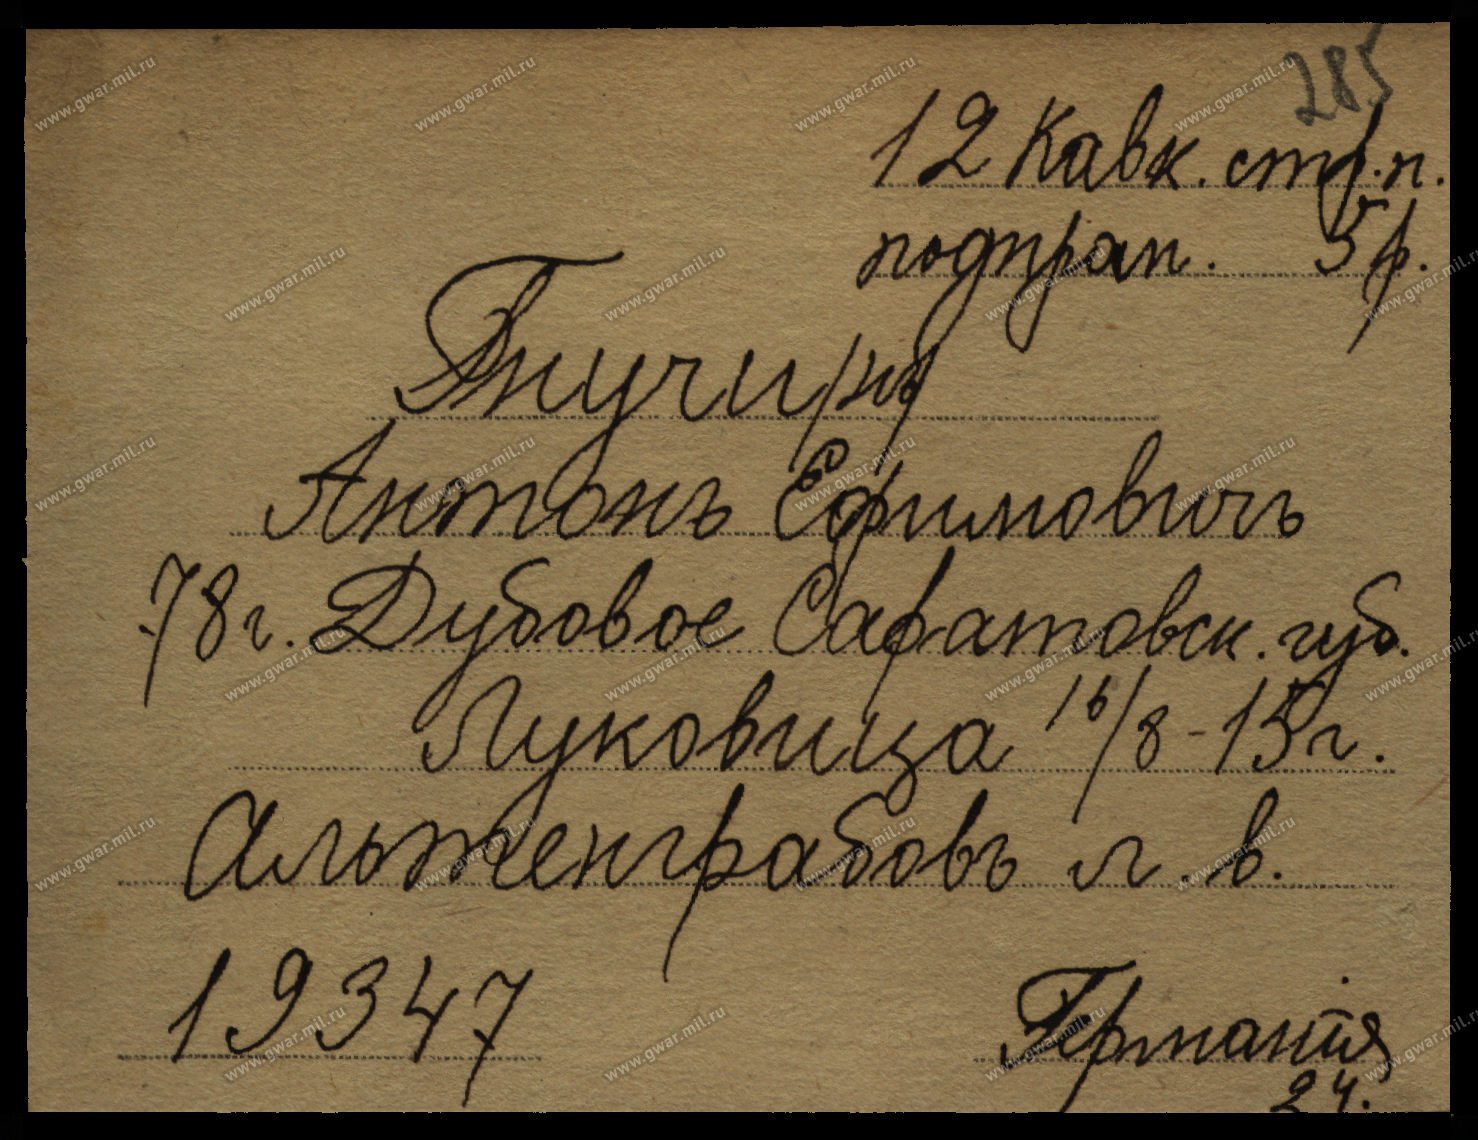 285
12 Кавк. стр. п.
подпрап. 5 р.
Гнучинъ
Антонъ Ефимовичъ
78 г. Дубовое Саратовск. губ.
Луковица 16/8-15 г.
Альтенграбовъ л. в.
19347
Германія
24.